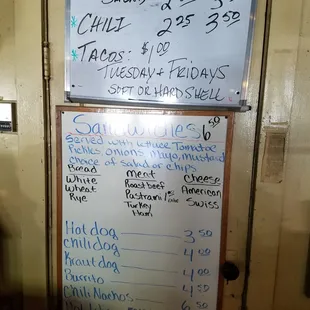 2 3
*CHILI 2 25 3 50
*TACOS: $1.00
TUESDAY & FRIDAYS
SOFT OR HARD SHELL
Sandwiches 6 50
Served with Lettuce Tomatoe
Pickles, onions, mayo, mustard
choice of salad or chips
Bread meat cheese
White Roast beef American
Wheat Pastrami Swiss
Rye Turkey
Ham
Hot dog 3 50
chili dog 4 00
Kraut dog 4 00
Burrito 4 50
Chili Nachos 6 50